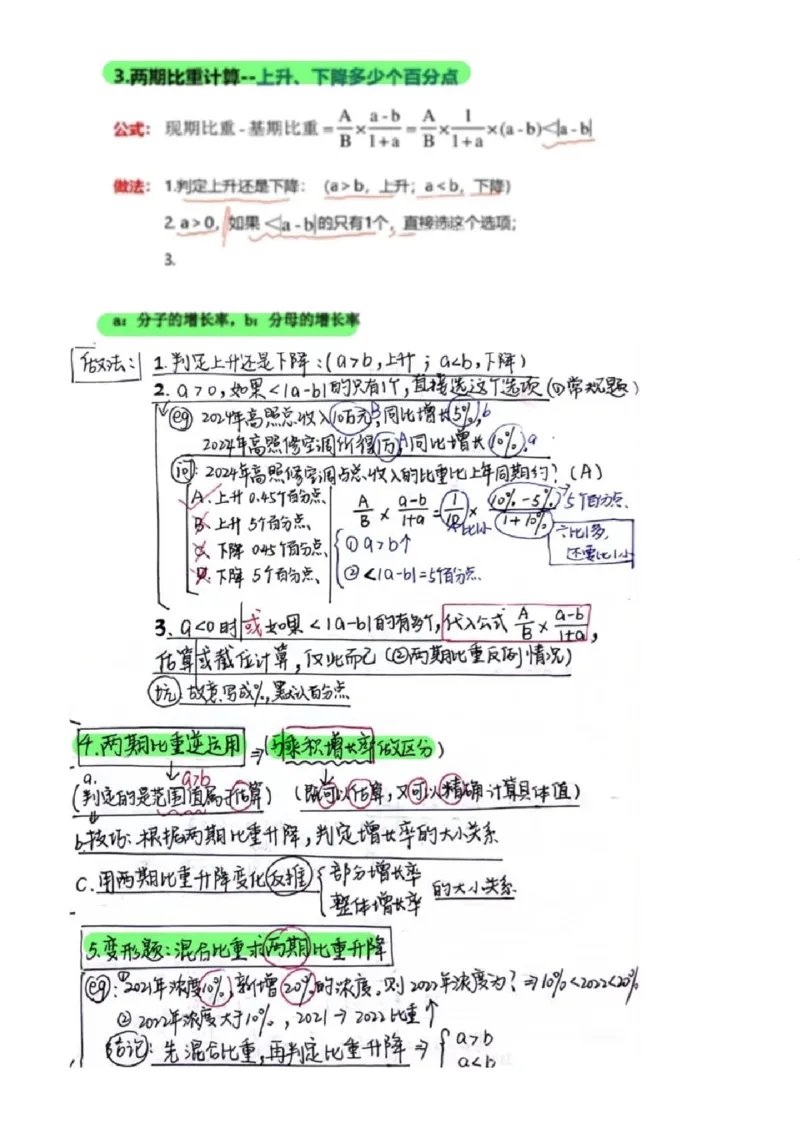 3.两期比重计算--上升、下降多少个百分点
公式： 现期比重-基期比重=A/B×(a-b)/(1+a)=A/B×1/(1+a)×(a-b)<|a-b|
做法： 1.判定上升还是下降：（a>b，上升；a<b，下降）
2. a>0，如果<|a-b|的只有1个，直接选这个选项；
3.
a：分子的增长率，b：分母的增长率
做法： 1.判定上升还是下降：(a>b，上升；a<b，下降)
2. a>0，如果<|a-b|的只有1个，直接选这个选项(①常规题)
eg 2024年高照总收入10万元B，同比增长5%，b
2024年高照修空调所得1万A，同比增长10%。a
问：2024年高照修空调占总收入的比重比上年同期约？(A)
A. 上升0.45个百分点
B. 上升5个百分点
C. 下降0.45个百分点
D. 下降5个百分点
A/B×(a-b)/(1+a)=1/10×(10%-5%)/(1+10%) 5个百分点
比1小
比1多，
还要比1小
①a>b↑
②<|a-b|=5个百分点
3. a<0时或如果<|a-b|的有多个，代入公式A/B×(a-b)/(1+a)，
估算或截位计算，仅此而已(②两期比重反例情况)
坑：故意写成%，默认百分点
4.两期比重逆运用⇒(与乘积增长率做区分)
a. a>b
(判定的是范围值属于估算) (既可以估算，又可以精确计算具体值)
b.技巧：根据两期比重升降，判定增长率的大小关系
C.用两期比重升降变化反推{部分增长率
整体增长率 的大小关系
5.变形题：混合比重求两期比重升降
eg：①2021年浓度10%，新增20%的浓度。则2022年浓度为？⇒10%<2022<20%
②2022年浓度大于10%，2021→2022比重↑
结论：先混合比重，再判定比重升降⇒{a>b
a<b